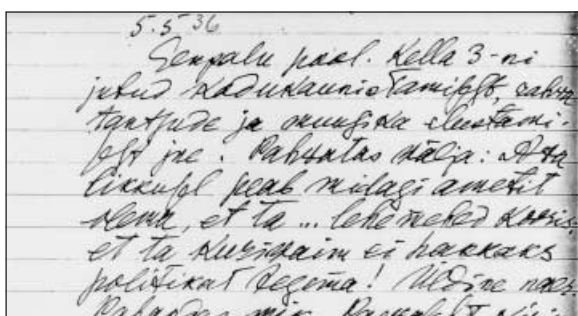 5.5 36
Eenpalu pool. Kella 3-ni
jutud kodukaunistamisest, rahva
tantsude ja muusika elustami-
sest jne. Pahvatas nalja: A ta
likkusel peab midagi ametit
olema, et ta ... lehemehed kooris:
et ta kurivaim ei hakkaks
politikat tegema! Üldine naer.